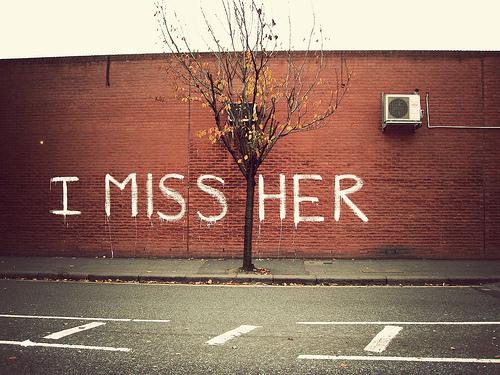 I MISS HER